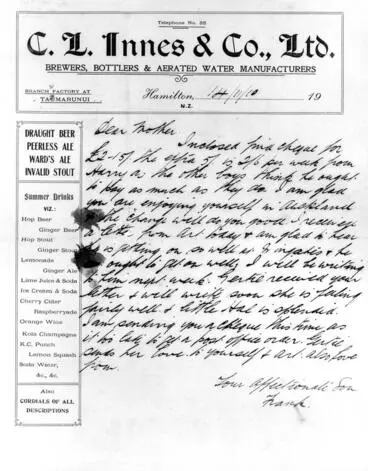 Telephone No. 35
C. L. Innes & Co., Ltd.
BREWERS, BOTTLERS & AERATED WATER MANUFACTURERS
BRANCH FACTORY AT
TAUMARUNUI.
Hamilton, 14/11/10 19
N.Z.
DRAUGHT BEER
PEERLESS ALE
WARD'S ALE
INVALID STOUT
Summer Drinks
VIZ.:
Hop Beer
Ginger Beer
Hop Stout
Ginger Stout
Lemonade
Ginger Ale
Lime Juice & Soda
Ice Cream & Soda
Cherry Cider
Raspberryade
Orange Wine
Kola Champagne
K.C. Punch
Lemon Squash
Soda Water,
&c., &c.
Also
CORDIALS OF ALL
DESCRIPTIONS
Dear Mother
Inclosed find cheque for
£2-15/ the extra 5/ is 2/6 per week from
Harry as the other boys think he ought
to pay as much as they do. I am glad
you are enjoying yourself in Auckland
the change will do you good. I received
a letter from Art today & am glad to hear
he is getting on so well at & he
ought to get on well, I will be writing
to him next week. Gertie received your
letter & will write soon she is feeling
fairly well & little Hal is splendid.
I am sending you a cheque this time as
it is too late to get a post office order. Gertie
sends her love to yourself & Art. also love
from.
Your Affectionate Son
Frank.